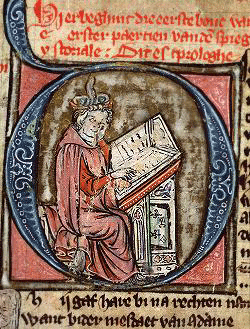 Hier beghint die eerste bouc
eerster paertien vandē spieg
ystoriale : Dit es tprologhe
gaf have bi na rechten
Want bider mesdaet van Adame